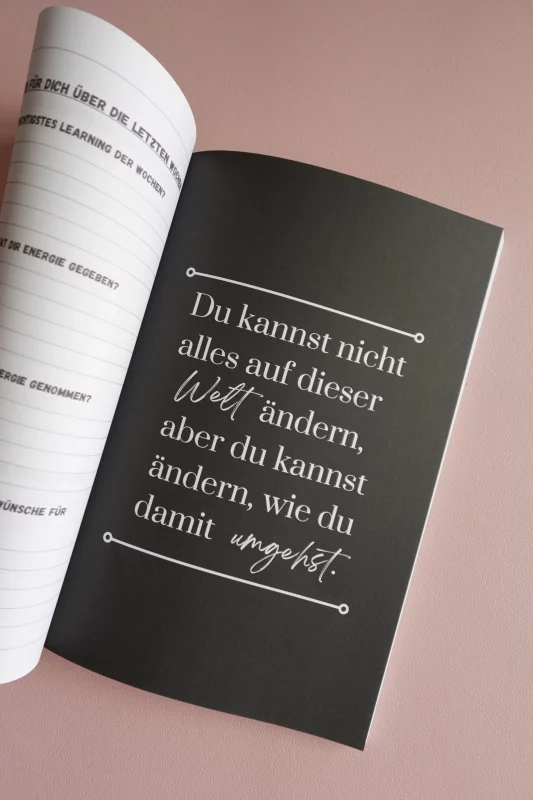 FÜR DICH ÜBER DIE LETZTEN
LEARNING DER WOCHEN?
DIR ENERGIE GEGEBEN?
GENOMMEN?
FÜR
Du kannst nicht
alles auf dieser
Welt ändern,
aber du kannst
ändern, wie du
damit umgehst.